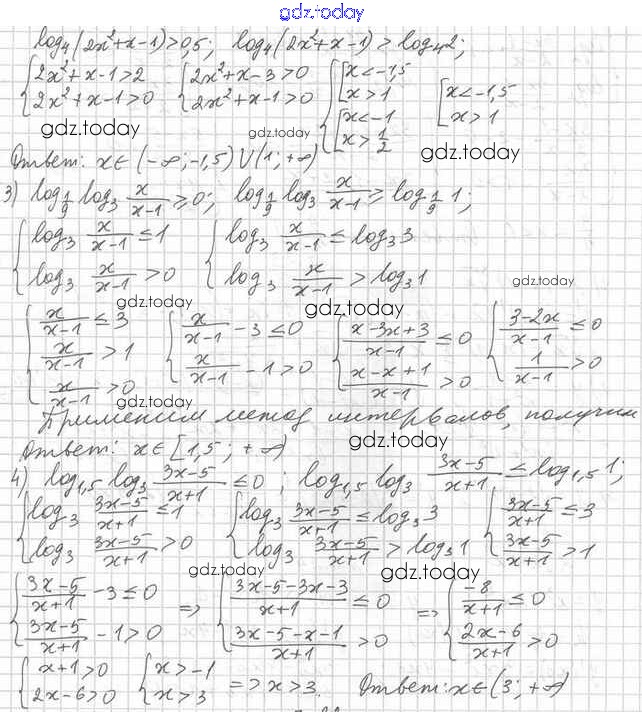 gdz.today
log₄(2x²+x-1)>0,5; log₄(2x²+x-1)>log₄2;
{2x²+x-1>2 {2x²+x-3>0 {[x<-1,5 [x<-1,5
{2x²+x-1>0 {2x²+x-1>0 {[x>1 [x>1
{[x<-1
gdz.today gdz.today {[x>1/2 gdz.today
Ответ: x∈(-∞;-1,5)∪(1;+∞)
3) log_{1/9} log₃ x/(x-1) ≥0; log_{1/9} log₃ x/(x-1) ≥ log_{1/9} 1;
{log₃ x/(x-1) ≤1 {log₃ x/(x-1) ≤ log₃3
{log₃ x/(x-1) >0 {log₃ x/(x-1) > log₃1 gdz.today
gdz.today gdz.today
{x/(x-1) ≤3 {x/(x-1) -3 ≤0 {(x-3x+3)/(x-1) ≤0 {(3-2x)/(x-1) ≤0
{x/(x-1) >1 {x/(x-1) -1>0 {(x-x+1)/(x-1) >0 {1/(x-1) >0
{x/(x-1) >0 gdz.today
Применим метод интервалов, получим
gdz.today
Ответ: x∈[1,5;+∞)
4) log_{1,5} log₃ (3x-5)/(x+1) ≤0; log_{1,5} log₃ (3x-5)/(x+1) ≤ log_{1,5} 1;
{log₃ (3x-5)/(x+1) ≤1 {log₃ (3x-5)/(x+1) ≤ log₃3 {(3x-5)/(x+1) ≤3
{log₃ (3x-5)/(x+1) >0 {log₃ (3x-5)/(x+1) > log₃1 {(3x-5)/(x+1) >1
gdz.today gdz.today
{(3x-5)/(x+1) -3≤0 ⇒ {(3x-5-3x-3)/(x+1) ≤0 ⇒ {-8/(x+1) ≤0
{(3x-5)/(x+1) -1>0 {(3x-5-x-1)/(x+1) >0 {(2x-6)/(x+1) >0
{x+1>0 {x>-1 => x>3. Ответ: x∈(3;+∞)
{2x-6>0 {x>3